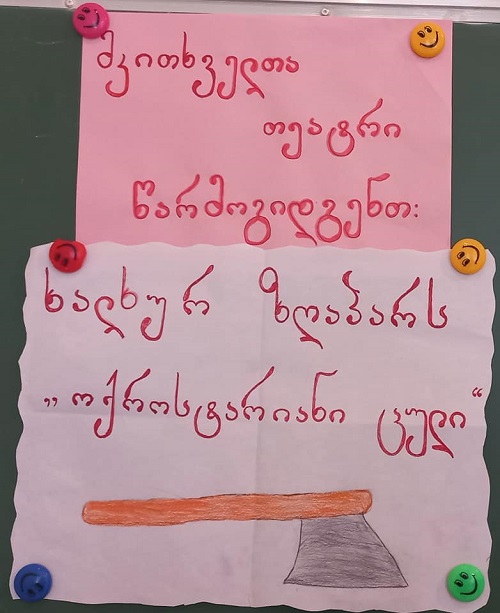 მკითხველთა
თეატრი
წარმოგიდგენთ:
ხალხურ ზღაპარს
„ოქროსტარიანი ცული“